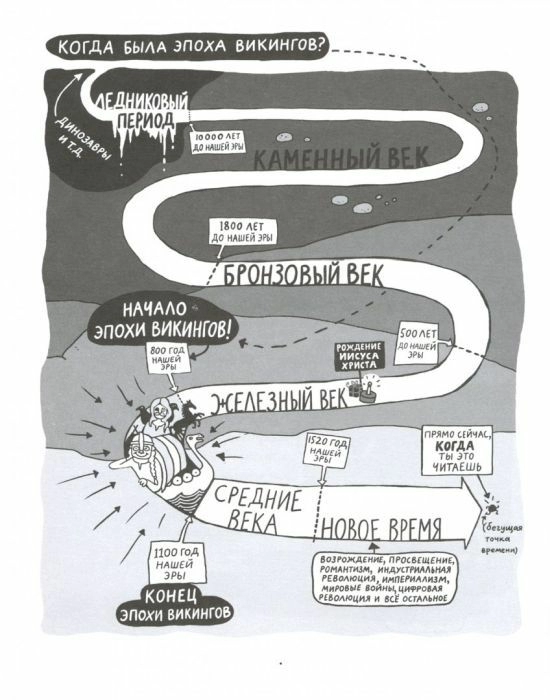 КОГДА БЫЛА ЭПОХА ВИКИНГОВ?
ЛЕДНИКОВЫЙ
ПЕРИОД
ДИНОЗАВРЫ
И Т.Д.
10 000 ЛЕТ
ДО НАШЕЙ ЭРЫ
КАМЕННЫЙ ВЕК
1800 ЛЕТ
ДО НАШЕЙ ЭРЫ
БРОНЗОВЫЙ ВЕК
НАЧАЛО
ЭПОХИ ВИКИНГОВ!
500 ЛЕТ
ДО НАШЕЙ
ЭРЫ
800 ГОД
НАШЕЙ
ЭРЫ
РОЖДЕНИЕ
ИИСУСА
ХРИСТА
ЖЕЛЕЗНЫЙ ВЕК
1520 ГОД
НАШЕЙ
ЭРЫ
ПРЯМО СЕЙЧАС,
КОГДА
ТЫ ЭТО
ЧИТАЕШЬ
СРЕДНИЕ
ВЕКА
НОВОЕ ВРЕМЯ
(бегущая
точка
времени)
1100 ГОД
НАШЕЙ
ЭРЫ
КОНЕЦ
ЭПОХИ ВИКИНГОВ
ВОЗРОЖДЕНИЕ, ПРОСВЕЩЕНИЕ,
РОМАНТИЗМ, ИНДУСТРИАЛЬНАЯ
РЕВОЛЮЦИЯ, ИМПЕРИАЛИЗМ,
МИРОВЫЕ ВОЙНЫ, ЦИФРОВАЯ
РЕВОЛЮЦИЯ И ВСЁ ОСТАЛЬНОЕ